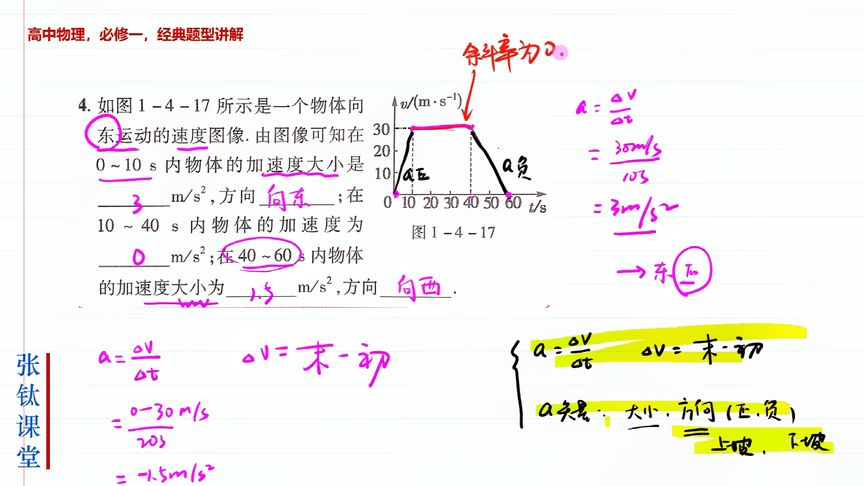 高中物理，必修一，经典题型讲解
斜率为0.
4. 如图1-4-17所示是一个物体向
东运动的速度图像.由图像可知在
0~10 s 内物体的加速度大小是
3 m/s²,方向 向东 ;在
10 ~ 40 s 内物体的加速度为
0 m/s²;在40~60 s 内物体
的加速度大小为 1.5 m/s²,方向 向西 .
v/(m·s⁻¹)
30
20
10
a正
a负
0 10 20 30 40 50 60 t/s
图1-4-17
a=Δv/Δt
=30m/s/10s
=3m/s²
→东 正
张钛课堂
a=Δv/Δt Δv=末-初
=0-30m/s/20s
=-1.5m/s²
a=Δv/Δt Δv=末-初
a矢量: 大小,方向(正.负)
上坡、下坡